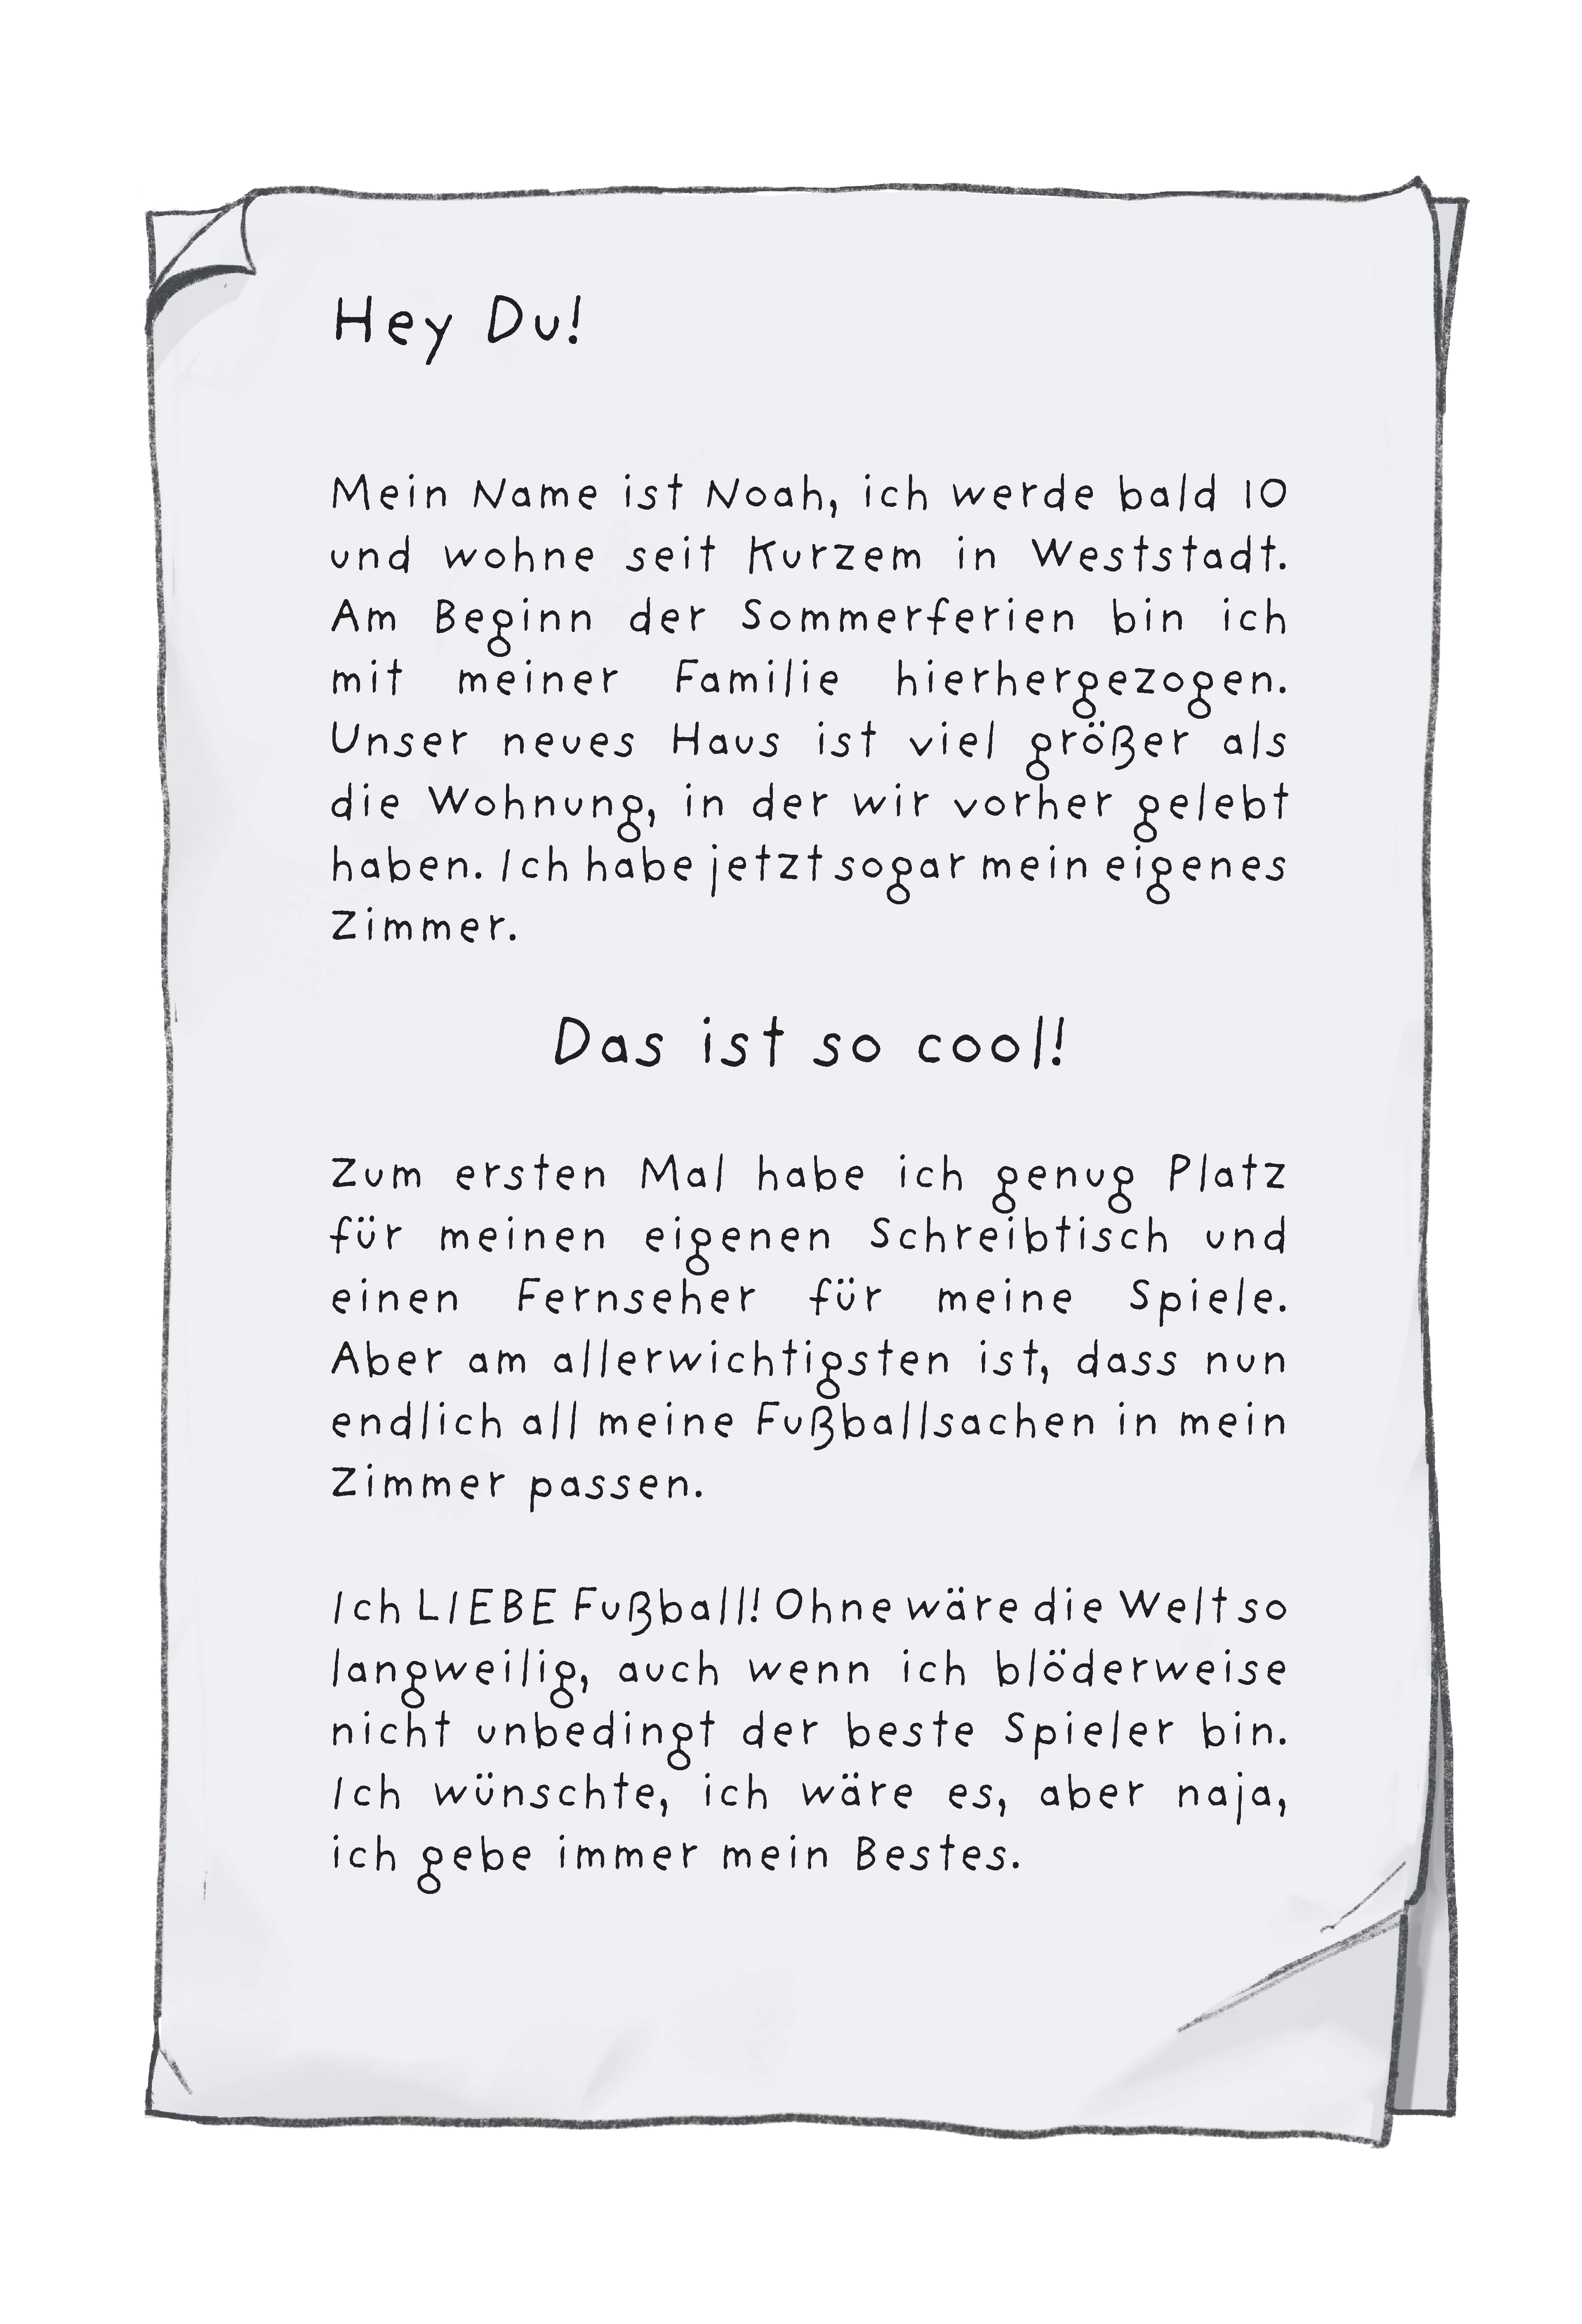 Hey Du!
Mein Name ist Noah, ich werde bald 10
und wohne seit Kurzem in Weststadt.
Am Beginn der Sommerferien bin ich
mit meiner Familie hierhergezogen.
Unser neues Haus ist viel größer als
die Wohnung, in der wir vorher gelebt
haben. Ich habe jetzt sogar mein eigenes
Zimmer.
Das ist so cool!
Zum ersten Mal habe ich genug Platz
für meinen eigenen Schreibtisch und
einen Fernseher für meine Spiele.
Aber am allerwichtigsten ist, dass nun
endlich all meine Fußballsachen in mein
Zimmer passen.
Ich LIEBE Fußball! Ohne wäre die Welt so
langweilig, auch wenn ich blöderweise
nicht unbedingt der beste Spieler bin.
Ich wünschte, ich wäre es, aber naja,
ich gebe immer mein Bestes.